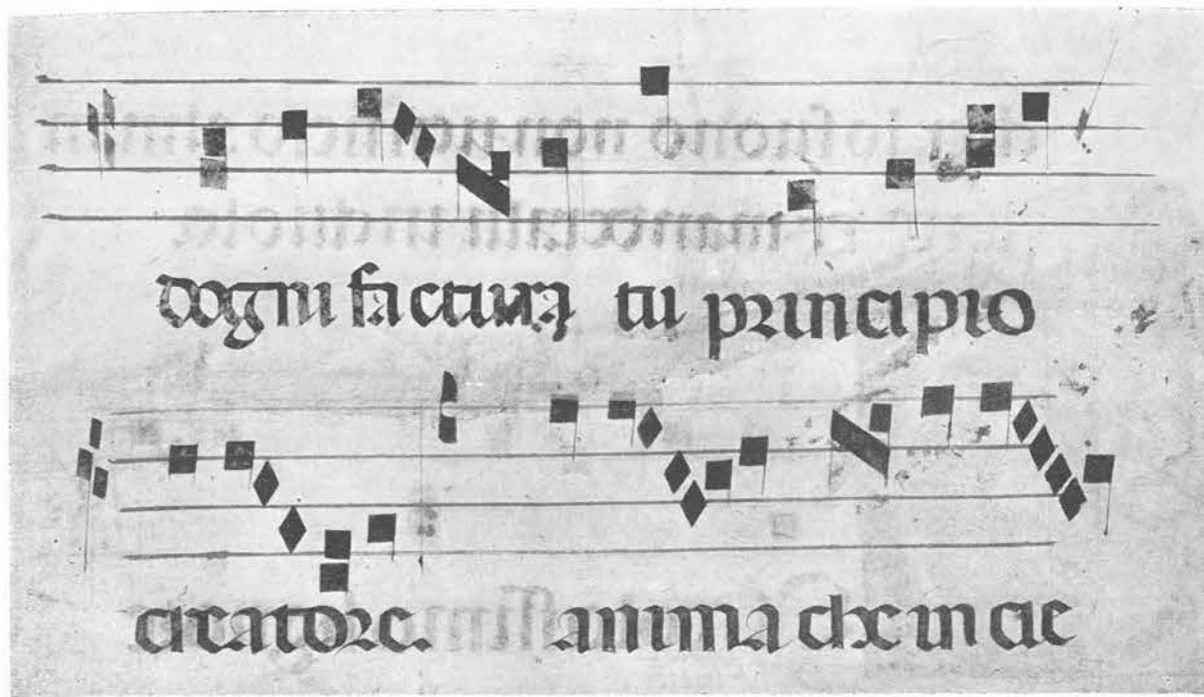 dogni factura tu principio
creatore. anima che in cie